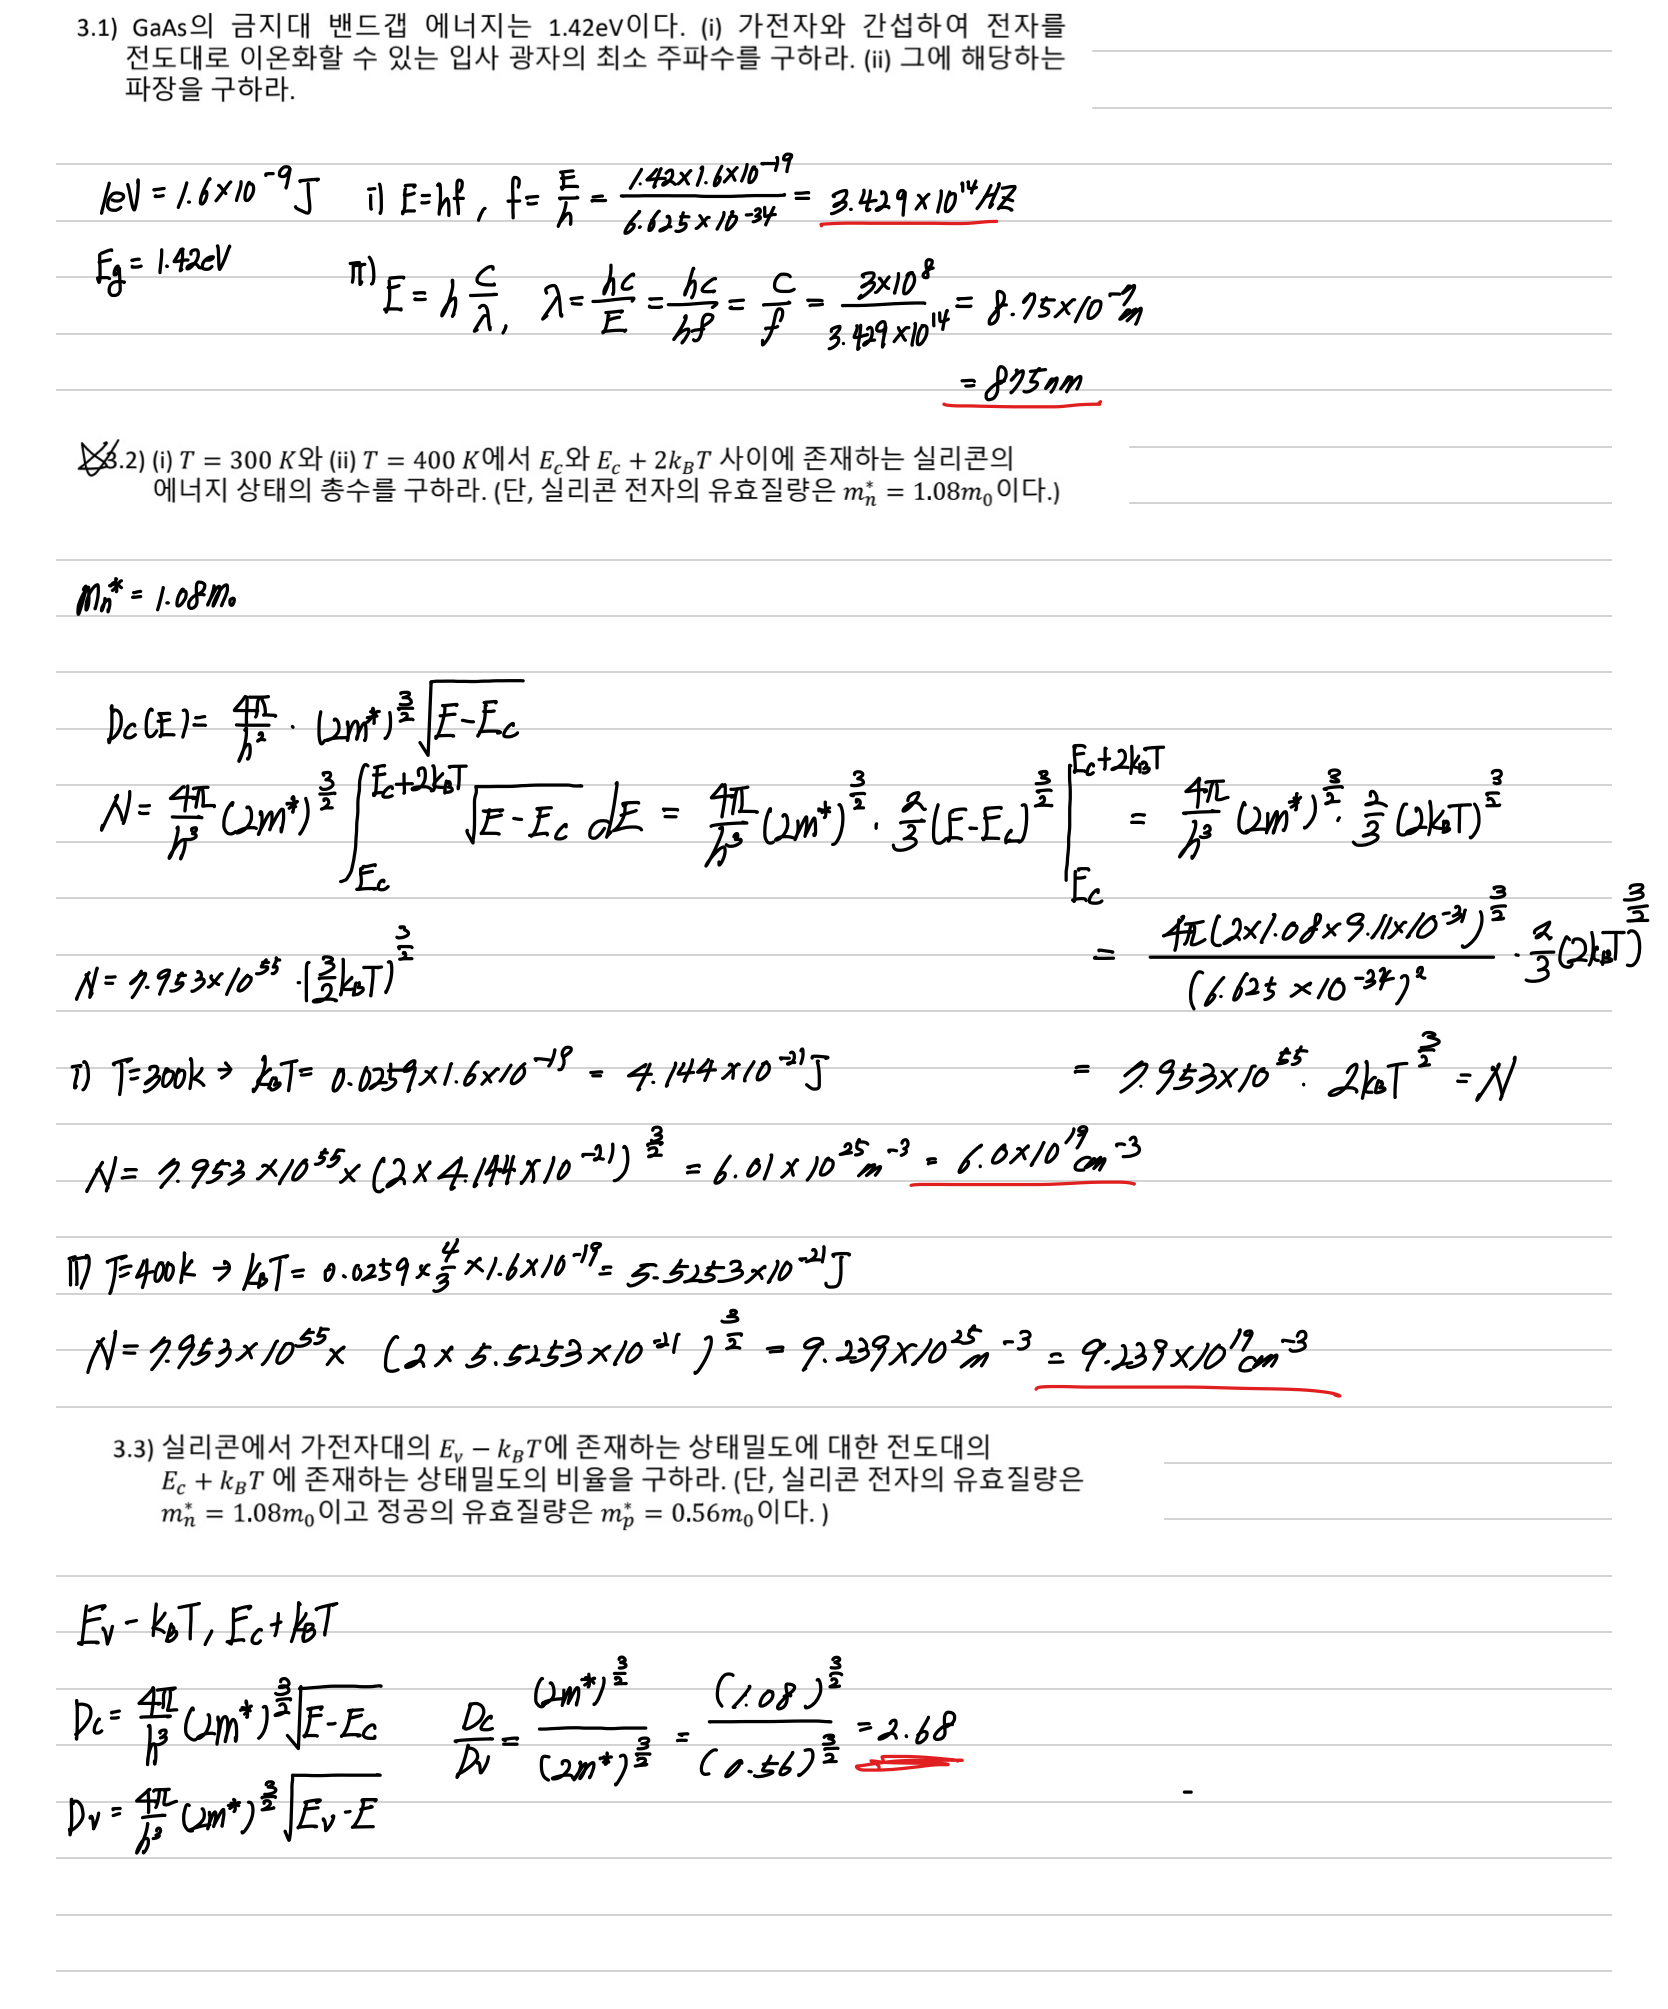 3.1) GaAs의 금지대 밴드갭 에너지는 1.42eV이다. (i) 가전자와 간섭하여 전자를
전도대로 이온화할 수 있는 입사 광자의 최소 주파수를 구하라. (ii) 그에 해당하는
파장을 구하라.
1eV = 1.6×10^-9 J   i) E=hf, f= E/h = (1.42×1.6×10^-19)/(6.625×10^-34) = 3.429×10^14 HZ
Eg = 1.42eV   ii) E = h c/λ, λ = hc/E = hc/hf = c/f = (3×10^8)/(3.429×10^14) = 8.75×10^-7 m
= 875nm
3.2) (i) T = 300 K와 (ii) T = 400 K에서 E_c와 E_c + 2k_BT 사이에 존재하는 실리콘의
에너지 상태의 총수를 구하라. (단, 실리콘 전자의 유효질량은 m_n^* = 1.08m_0이다.)
m_n^* = 1.08m_0
Dc(E) = 4π/h^2 · (2m*)^(3/2) √(E-Ec)
N = 4π/h^3 (2m*)^(3/2) ∫_Ec^(Ec+2k_BT) √(E-Ec) dE = 4π/h^3 (2m*)^(3/2) · 2/3 (E-Ec)^(3/2) |_Ec^(Ec+2k_BT) = 4π/h^3 (2m*)^(3/2) · 2/3 (2k_BT)^(3/2)
= 4π(2×1.08×9.11×10^-31)^(3/2) / (6.625×10^-34)^2 · 2/3 (2k_BT)^(3/2)
N = 7.953×10^55 · (3/2 k_BT)^(3/2)
= 7.953×10^55 · 2k_BT^(3/2) = N
i) T=300k → k_BT = 0.0259×1.6×10^-19 = 4.144×10^-21 J
N = 7.953×10^55 × (2×4.144×10^-21)^(3/2) = 6.01×10^25 m^-3 = 6.0×10^19 cm^-3
ii) T=400k → k_BT = 0.0259×4/3×1.6×10^-19 = 5.5253×10^-21 J
N = 7.953×10^55 × (2×5.5253×10^-21)^(3/2) = 9.239×10^25 m^-3 = 9.239×10^19 cm^-3
3.3) 실리콘에서 가전자대의 E_v − k_BT에 존재하는 상태밀도에 대한 전도대의
E_c + k_BT 에 존재하는 상태밀도의 비율을 구하라. (단, 실리콘 전자의 유효질량은
m_n^* = 1.08m_0이고 정공의 유효질량은 m_p^* = 0.56m_0이다. )
Ev - k_BT, Ec + k_BT
Dc = 4π/h^3 (2m*)^(3/2) √(E-Ec)   Dc/Dv = (2m*)^(3/2) / (2m*)^(3/2) = (1.08)^(3/2) / (0.56)^(3/2) = 2.68
Dv = 4π/h^3 (2m*)^(3/2) √(Ev-E)